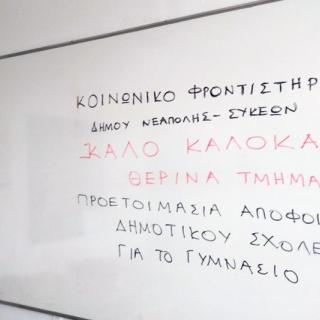 ΚΟΙΝΩΝΙΚΟ ΦΡΟΝΤΙΣΤΗΡ
ΔΗΜΟΥ ΝΕΑΠΟΛΗΣ - ΣΥΚΕΩΝ
ΚΑΛΟ ΚΑΛΟΚΑ
ΘΕΡΙΝΑ ΤΜΗΜΑ
ΠΡΟΕΤΟΙΜΑΣΙΑ ΑΠΟΦΟΙ
ΔΗΜΟΤΙΚΟΥ ΣΧΟΛΕ
ΓΙΑ ΤΟ ΓΥΜΝΑΣΙΟ